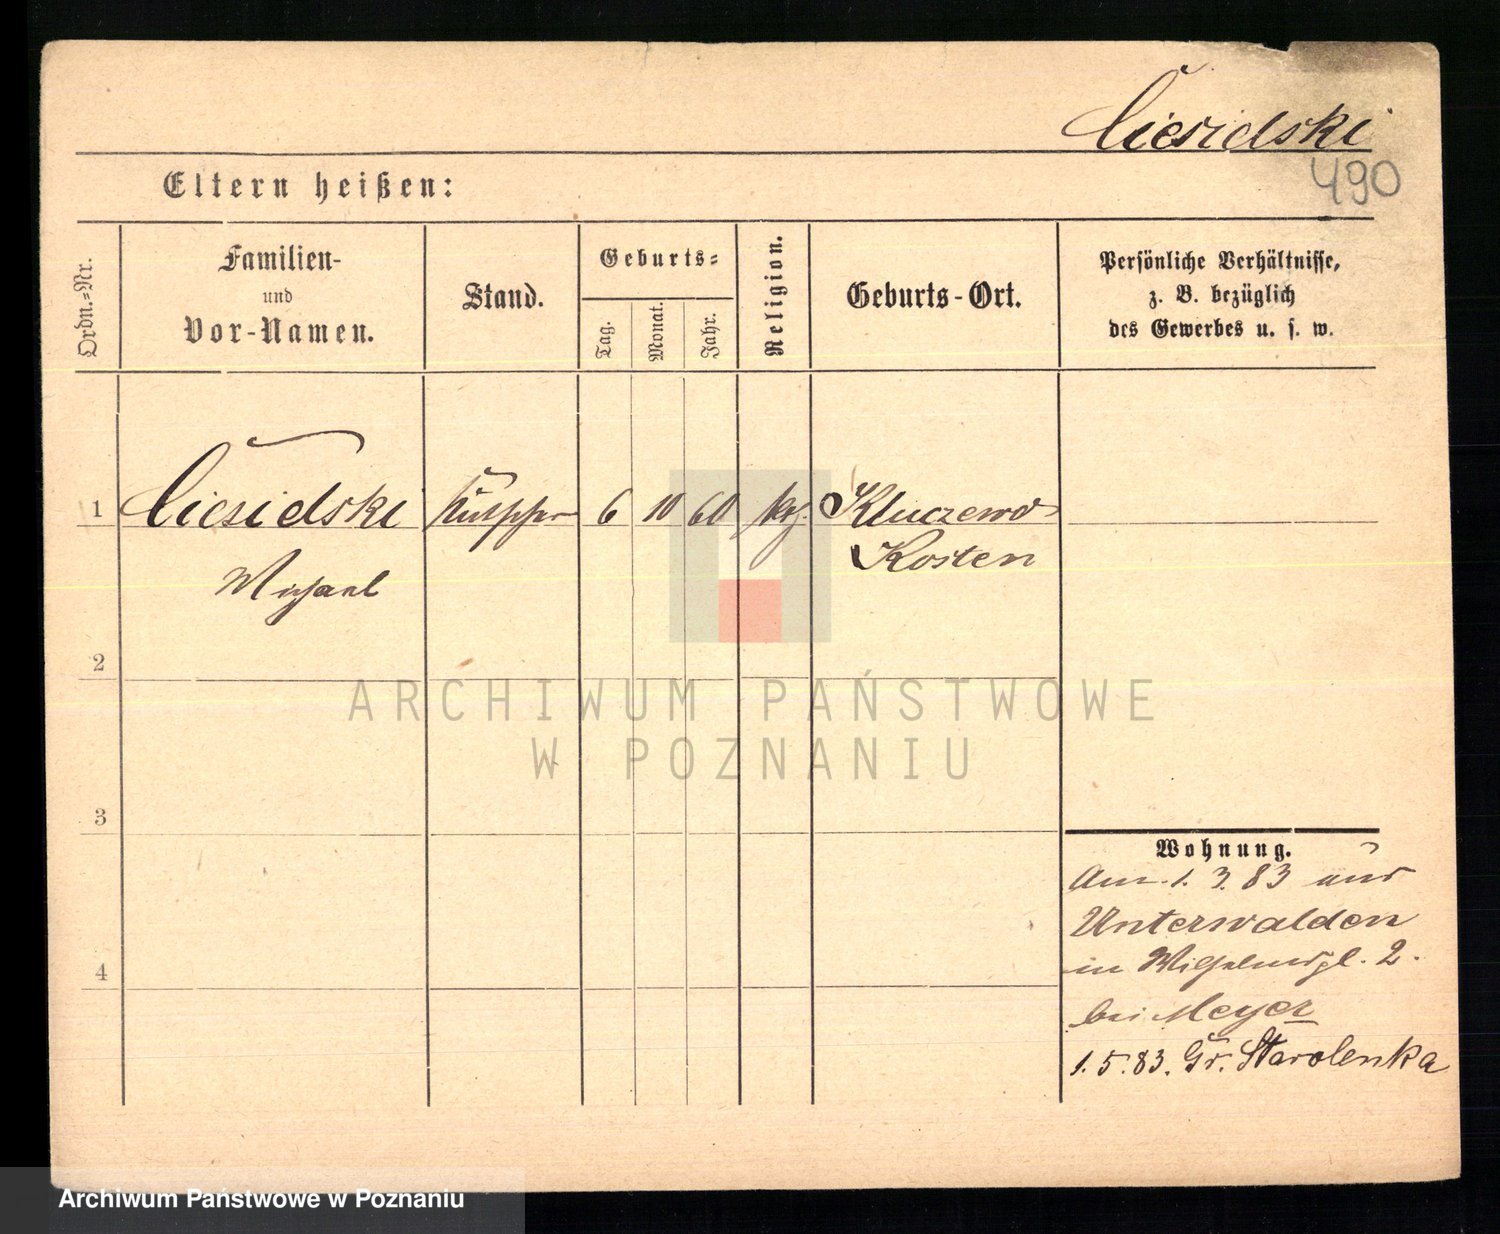 Ciesidski
490
Eltern heißen:
Ordn.=Nr.
Familien-
und
Vor-Namen.
Stand.
Geburts=
Tag.
Monat.
Jahr.
Religion.
Geburts-Ort.
Persönliche Verhältnisse,
z. B. bezüglich
des Gewerbes u. s. w.
1 Ciesidski 6 10 60 Kluczewo
Michael Kosten
2
3
4
Wohnung.
Am 1. 3. 83 aus
Unterwalden
in Wilhelmspl. 2.
bei Meyer
1.5.83. Gr. Starolenka
ARCHIWUM PAŃSTWOWE
W POZNANIU
Archiwum Państwowe w Poznaniu